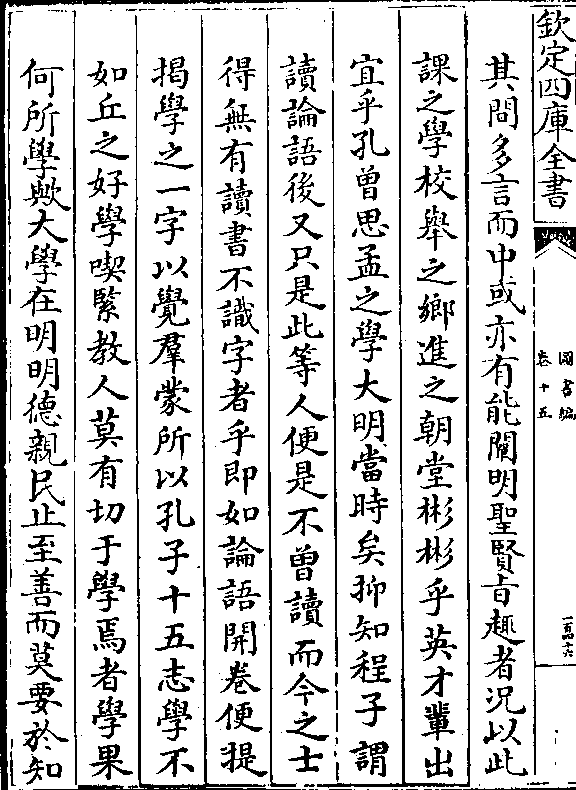 欽定四庫全書
圖書編
卷十五
一百四十六
其問多言而中或亦有能闡明聖賢旨趣者況以此
課之學校舉之鄉進之朝堂彬彬乎英才輩出
宜乎孔曾思孟之學大明當時矣抑知程子謂
讀論語後又只是此等人便是不曾讀而今之士
得無有讀書不識字者乎即如論語開卷便提
揭學之一字以覺羣蒙所以孔子十五志學不
如丘之好學喫緊教人莫有切于學焉者學果
何所學歟大學在明明德親民止至善而莫要於知